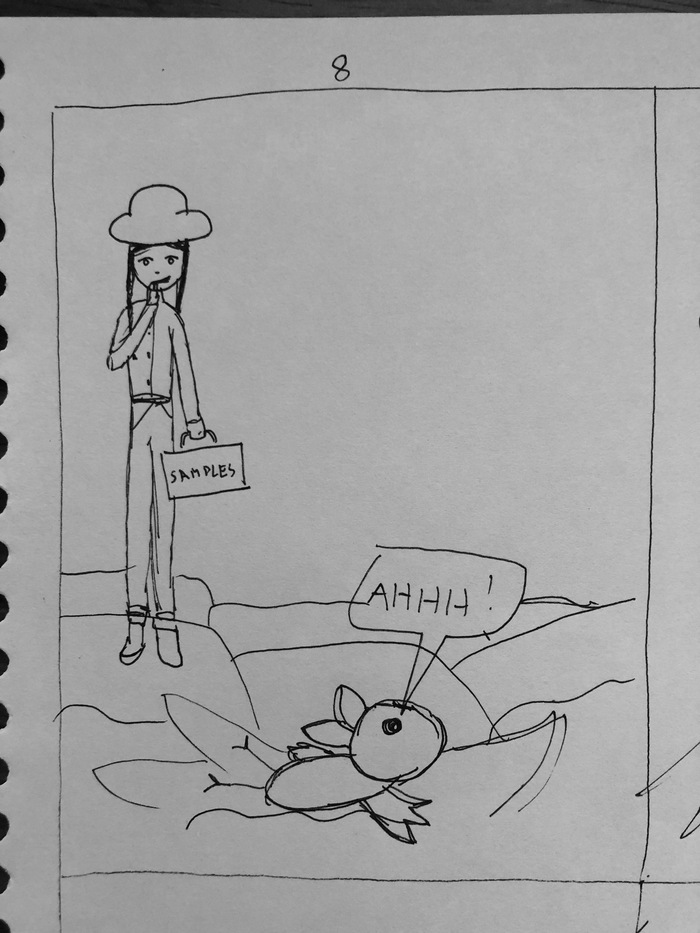 8
SAMPLES
AHHH!